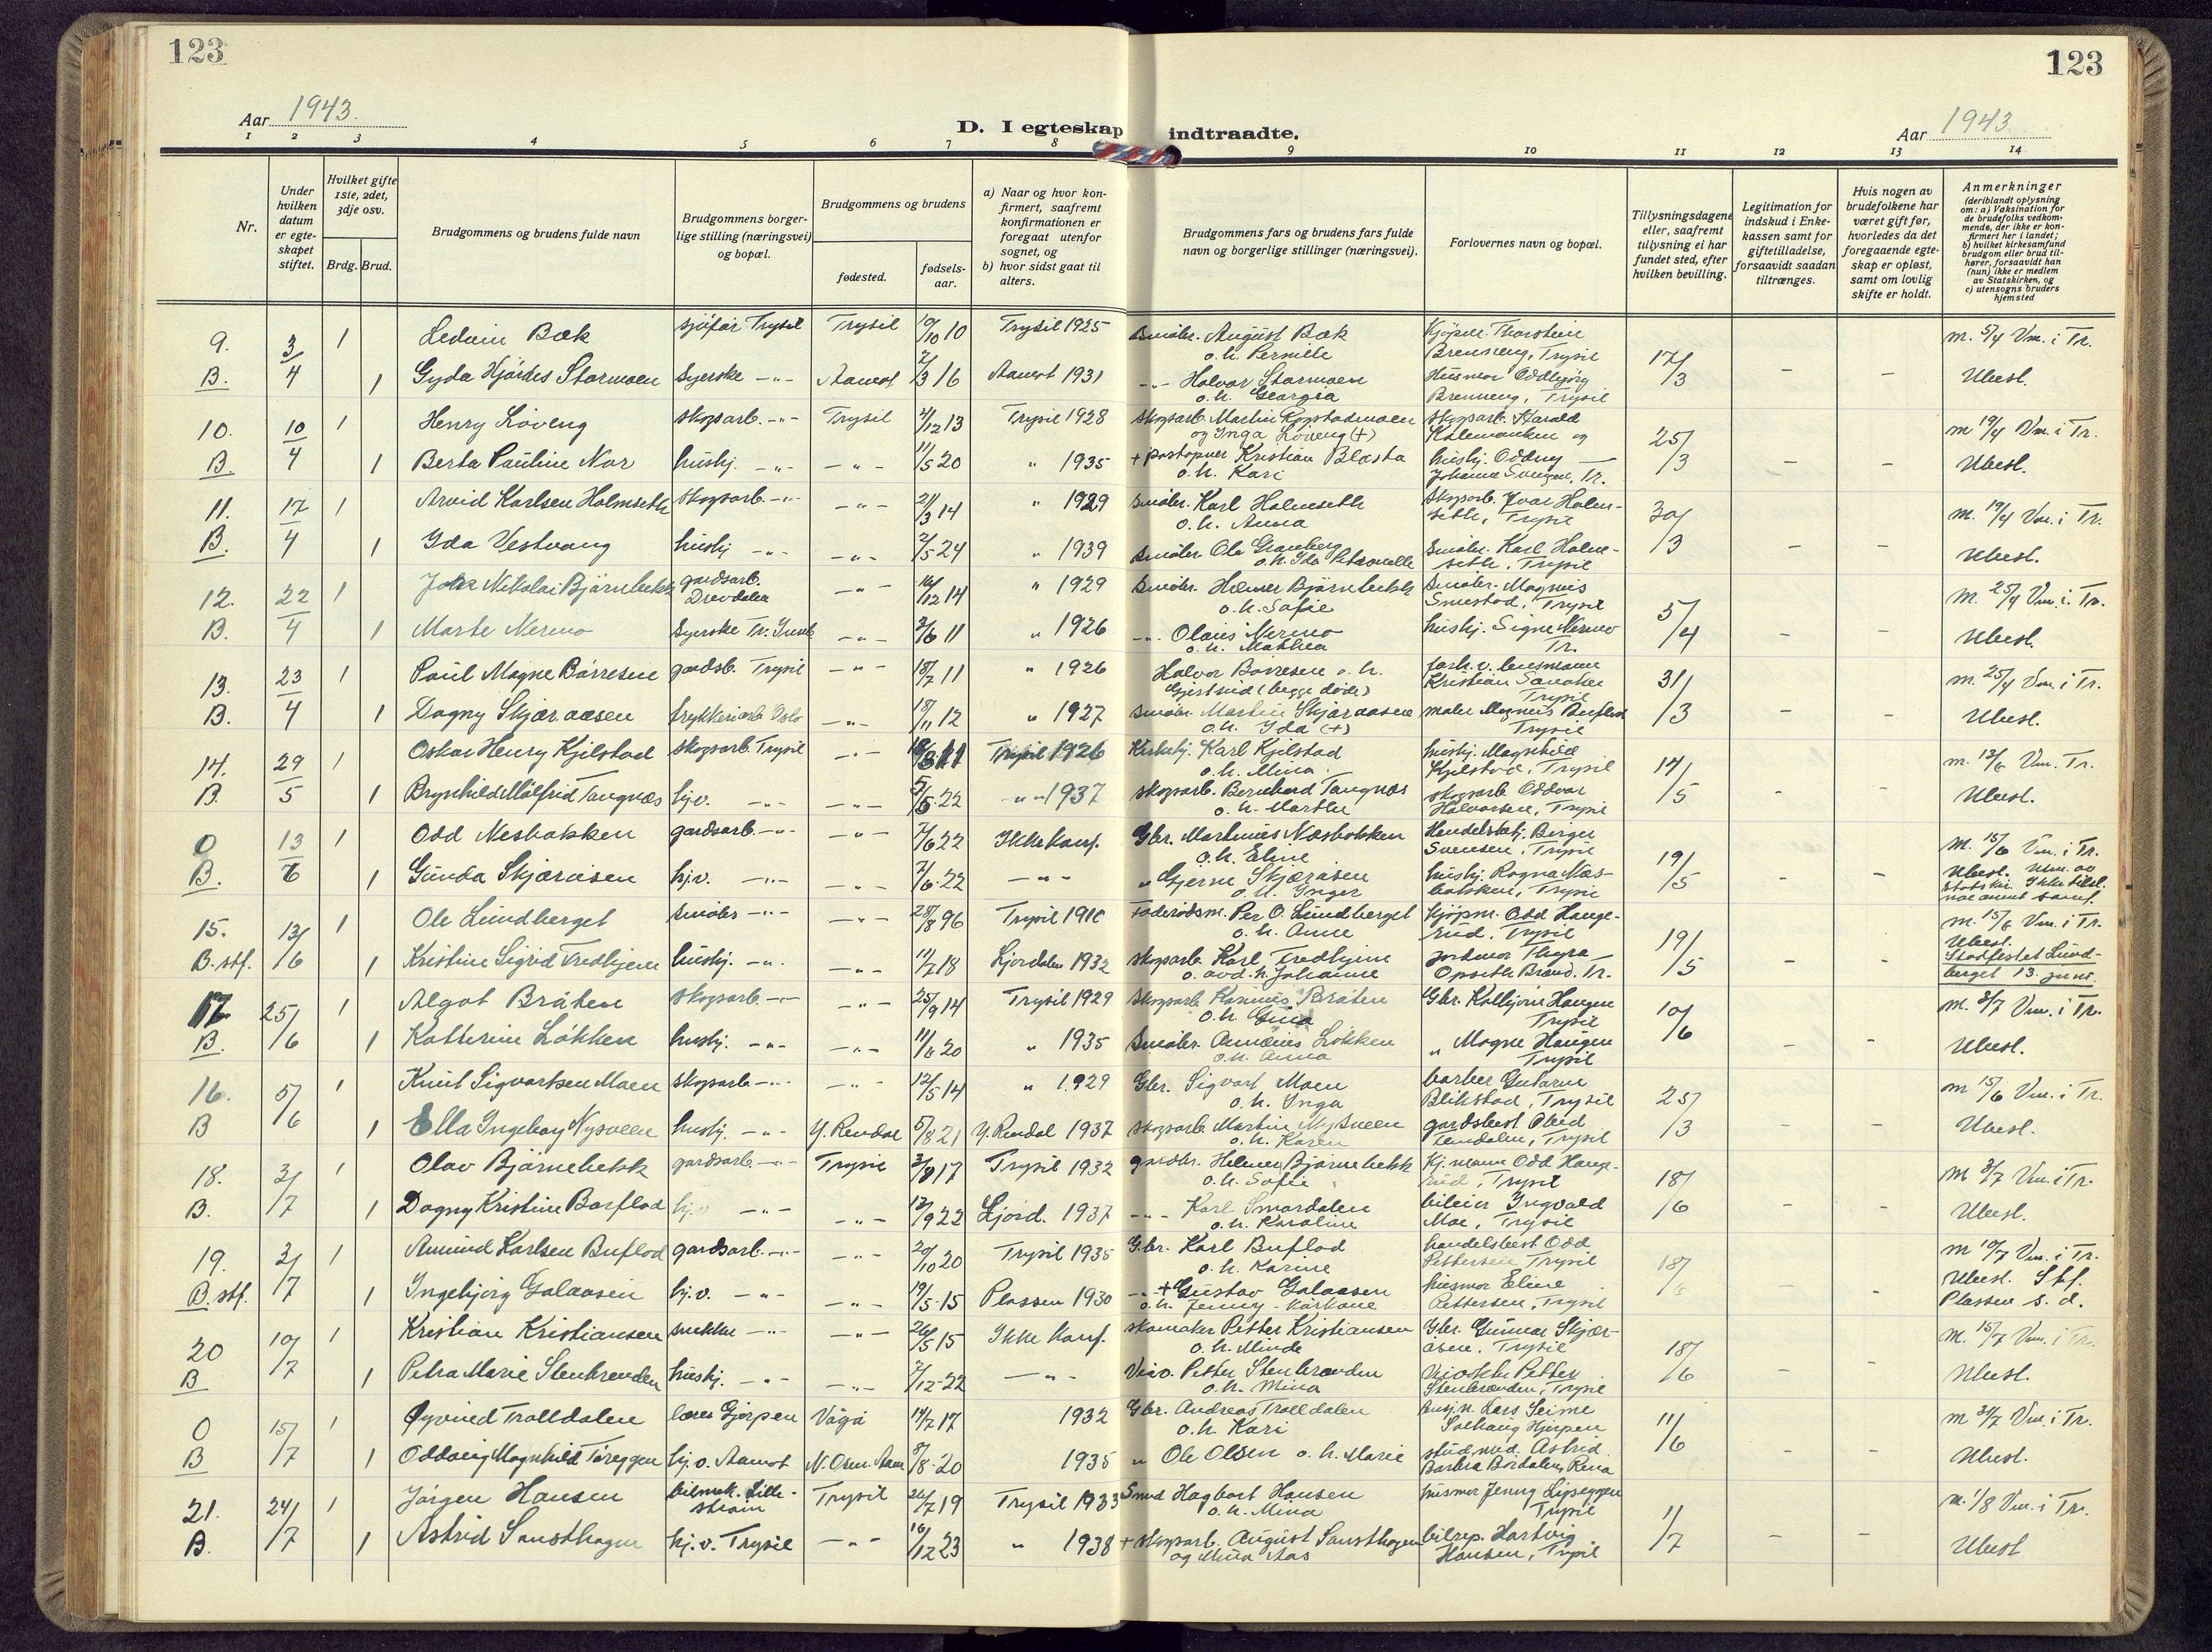 123
123
Aar 1943.
D. I egteskap indtraadte.
Aar 1943
1 2 3 4 5 6 7 8 9 10 11 12 13 14
Nr.
Under hvilken datum er egteskapet stiftet.
Hvilket gifte 1ste, 2det, 3dje osv.
Brdg. Brud.
Brudgommens og brudens fulde navn
Brudgommens borgerlige stilling (næringsvei) og bopæl.
Brudgommens og brudens
fødested.
fødselsaar.
a) Naar og hvor konfirmert, saafremt konfirmationen er foregaat utenfor sognet, og
b) hvor sidst gaat til alters.
Brudgommens fars og brudens fars fulde navn og borgerlige stillinger (næringsvei).
Forlovernes navn og bopæl.
Tillysningsdagene eller, saafremt tillysning ei har fundet sted, efter hvilken bevilling.
Legitimation for indskud i Enkekassen samt for giftetilladelse, forsaavidt saadan tiltrænges.
Hvis nogen av brudefolkene har været gift før, hvorledes da det foregaaende egteskap er opløst, samt om lovlig skifte er holdt.
Anmerkninger (deriblandt oplysning om: a) Vaksination for de brudefolks vedkommende, der ikke er konfirmert her i landet; b) hvilket kirkesamfund brudgom eller brud tilhører, forsaavidt han (hun) ikke er medlem av Statskirken, og c) utensogns bruders hjemsted
9. 3/4 1 Ledvin Bæk sjåfør Trysil Trysil 10/10 10 Trysil 1925 Småbr. August Bæk o.h. Pernille Kjøpm. Thorstein Brenneng, Trysil 17/3 m. 5/4 Vm. i Tr.
B. 1 Gyda Hjördis Stormoen Syerske -"- Aamot 2/3 16 Aamot 1931 -"- Halvor Stormoen o.h. Georgia Husmor Oddbjørg Brenneng, Trysil - - Ubest.
10. 10/4 1 Henry Löveng skogsarb. -"- Trysil 4/12 13 Trysil 1928 Skogsarb. Martin Rogstadmoen og Inga Löveng (+) Skogsarb. Harald 25/3 m 19/4 Vm. i Tr.
B. 1 Berta Pauline Nor hushj. -"- -"- 11/5 20 " 1935 + Postopner Kristian Blæsta o.h. Kari hushj. Oddny Johanne Svingen, Tr. - - Ubest.
11. 17/4 1 Arvid Karlsen Holmseth Skogsarb. -"- -"- 21/3 14 " 1929 Småbr. Karl Holmseth o.h. Anna Skogsarb. Ivar Holmseth, Trysil 30/3 m. 19/4 Vm. i Tr.
B. 1 Ida Vestvang hushj -"- -"- 2/5 24 " 1939 Småbr. Ole Granberg o.h. Ida Petronelle Småbr. Karl Holmseth, Trysil - - Ubest.
12. 22/4 1 Nikolai Björnebekk gardsarb. Drevdalen -"- 16/12 14 " 1929 Småbr. Helmer Bjørnebekk o.h. Safie Småbr. Magnus Smestad, Trysil 5/4 M. 25/4 Vm. i. Tr.
B. 1 Marte Nermo Syerske Tr. -"- 3/6 11 " 1926 -"- Olaus Nermo o.h. Mathea hushj. Signe Nermo Tr. - - Ubest.
13. 23/4 1 Paul Magne Börresen gardsb. Trysil -"- 18/7 11 " 1926 Halvor Börresen o.h. Gjertrud (begge döde) Kristian Sanaker Trysil 31/3 m. 25/4 Vm. i Tr.
B. 1 Dagny Skjæraasen trykkeriarb Oslo -"- 18/11 12 " 1927 Småbr. Martin Skjæraasen o.h. Ida (+) maler Magnus Buflod Trysil - - Ubest.
14. 29/5 1 Oskar Henry Kjelstad skogsarb. Trysil -"- Trysil 1926 Kirkehj. Karl Kjelstad o.h. Mina hushj. Magnhild Kjelstad, Trysil 14/5 m. 13/6 Vm. Tr.
B. 1 Brynhild Målfrid Tangnæs hj.v. -"- -"- 5/5 22 -"- 1937 skogsarb. Bernhard Tangnæs o.h. Marthe skogsarb. Oddvar Halvorsen, Trysil - - Ubest.
0 13/6 1 Odd Nesbakken gardsarb. -"- -"- 7/6 22 Ikke konf. Gbr. Martinus Næsbakken o.h. Eline Handelsbetj. Birger Svensen, Trysil 19/5 M. 15/6 Vm. i Tr.
B. 1 Gunda Skjæraasen hj.v. -"- -"- 7/6 22 -"- " Gjerne Skjæråsen o.h. Inger hushj. Ragna Næsbakken, Trysil - - Ubest.
15. 13/6 1 Ole Lundberget småbr -"- -"- 28/8 96 Trysil 1910 Föderådsm. Per O. Lundberget o.h. Anne Kjöpm. Odd Haugerud, Trysil 19/5 m. 15/6 Vm. i Tr.
B. stf. 1 Kristine Sigrid Fredhjem hushj. -"- -"- 11/7 18 Ljørdalen 1932 skogsarb. Karl Fredhjem o. avd. h. Johanne jordmor Thyra Opseth Brænd. Tr. - - Ubest. Stadfestet Lundberget 13. juni.
17. 25/6 1 Algot Bråten skogsarb -"- -"- 25/9 14 Trysil 1929 Skogsarb. Bråten o.h. Gina Gbr. Kolbjørn Haugen Trysil 10/6 m. 2/7 Vm. i Tr.
B. 1 Katherine Løkken hushj. -"- -"- 11/6 20 " 1935 Småbr. Løkken o.h. Anna " Magne Haugen Trysil - - Ubest.
16. 5/6 1 Knut Sigvartsen Moen skogsarb -"- -"- 12/5 14 " 1929 Gbr. Sigvart Moen o.h. Inga barber Gudrun Blikstad, Trysil 25/3 m 15/6 Vm. i Tr.
B 1 Ella Ingeborg Nysveen hushj. -"- Y. Rendal 5/8 21 Y. Rendal 1937 skogsarb. Martin Nysveen o.h. Karen gardsbest. Tr. - - Ubest.
18. 3/7 1 Olav Björnebekk gardsarb. -"- Trysil 3/8 17 Trysil 1932 gardbr. Helmer Björnebekk o.h. Sofie Kj.mann Odd Haugerud, Trysil 18/6 M 3/7 Vm. i Tr.
B. 1 Dagny Kristine Borflod hj.v -"- -"- 13/9 22 Ljørd. 1937 -"- Karl Smørdalen o.h. Karoline bileier Ingvald Moe, Trysil - - Ubest.
19. 3/7 1 Amund Karlsen Buflod gardsarb. -"- -"- 20/10 20 Trysil 1935 Gbr. Karl Buflod o.h. Karine handelsbest Odd Pettersen Trysil 18/6 m 10/7 Vm. i Tr.
B. stf. 1 Ingebjörg Galaasen hj.v. -"- -"- 19/5 15 Plassen 1930 -"- + Gustav Galaasen o.h. Jenny husmor Eline Pettersen, Trysil - - Ubest. Stf. Plassen s. d.
20 10/7 1 Kristian Kristiansen snekker -"- -"- 26/5 15 Ikke konf. skomaker Petter Kristiansen o.h. Minda Gbr. Gunnar Skjæråsen, Trysil 18/6 m. 15/7 Vm. i Tr.
B 1 Petra Marie Stenbrenden hushj. -"- -"- 7/12 22 -"- Veiv. Petter Stenbrænden o.h. Mina Petter Stenbrænden, Trysil - - Ubest.
0 15/7 1 Øyvind Trolldalen lærer Gjerpen Vågå 14/7 17 1932 Gbr. Andreas Trolldalen o.h. Kari Lars Seime Solhaug Gjerpen 11/6 m 24/7 Vm. i Tr.
B 1 Oddveig Magnhild Tøreggen hj.v. Aamot N. Osen. Aam. 8/8 20 1935 " Ole Olsen o.h. Marie stud. med. Astrid Barbra Bordalen, Rena - - Ubest.
21. 24/7 1 Jörgen Hansen bilmek. Lilleström Trysil 26/7 19 Trysil 1933 Smed Hagbart Hansen o.h. Mina husmor Jenny Lyseggen Trysil 11/7 m. 1/8 Vm. i Tr.
B. 1 Astrid Sansthagen hj.v. Trysil -"- 16/12 23 " 1938 + skogsarb. August Sansthagen og Mina Aas bilrep. Hartvig Hansen, Trysil - - Ubest